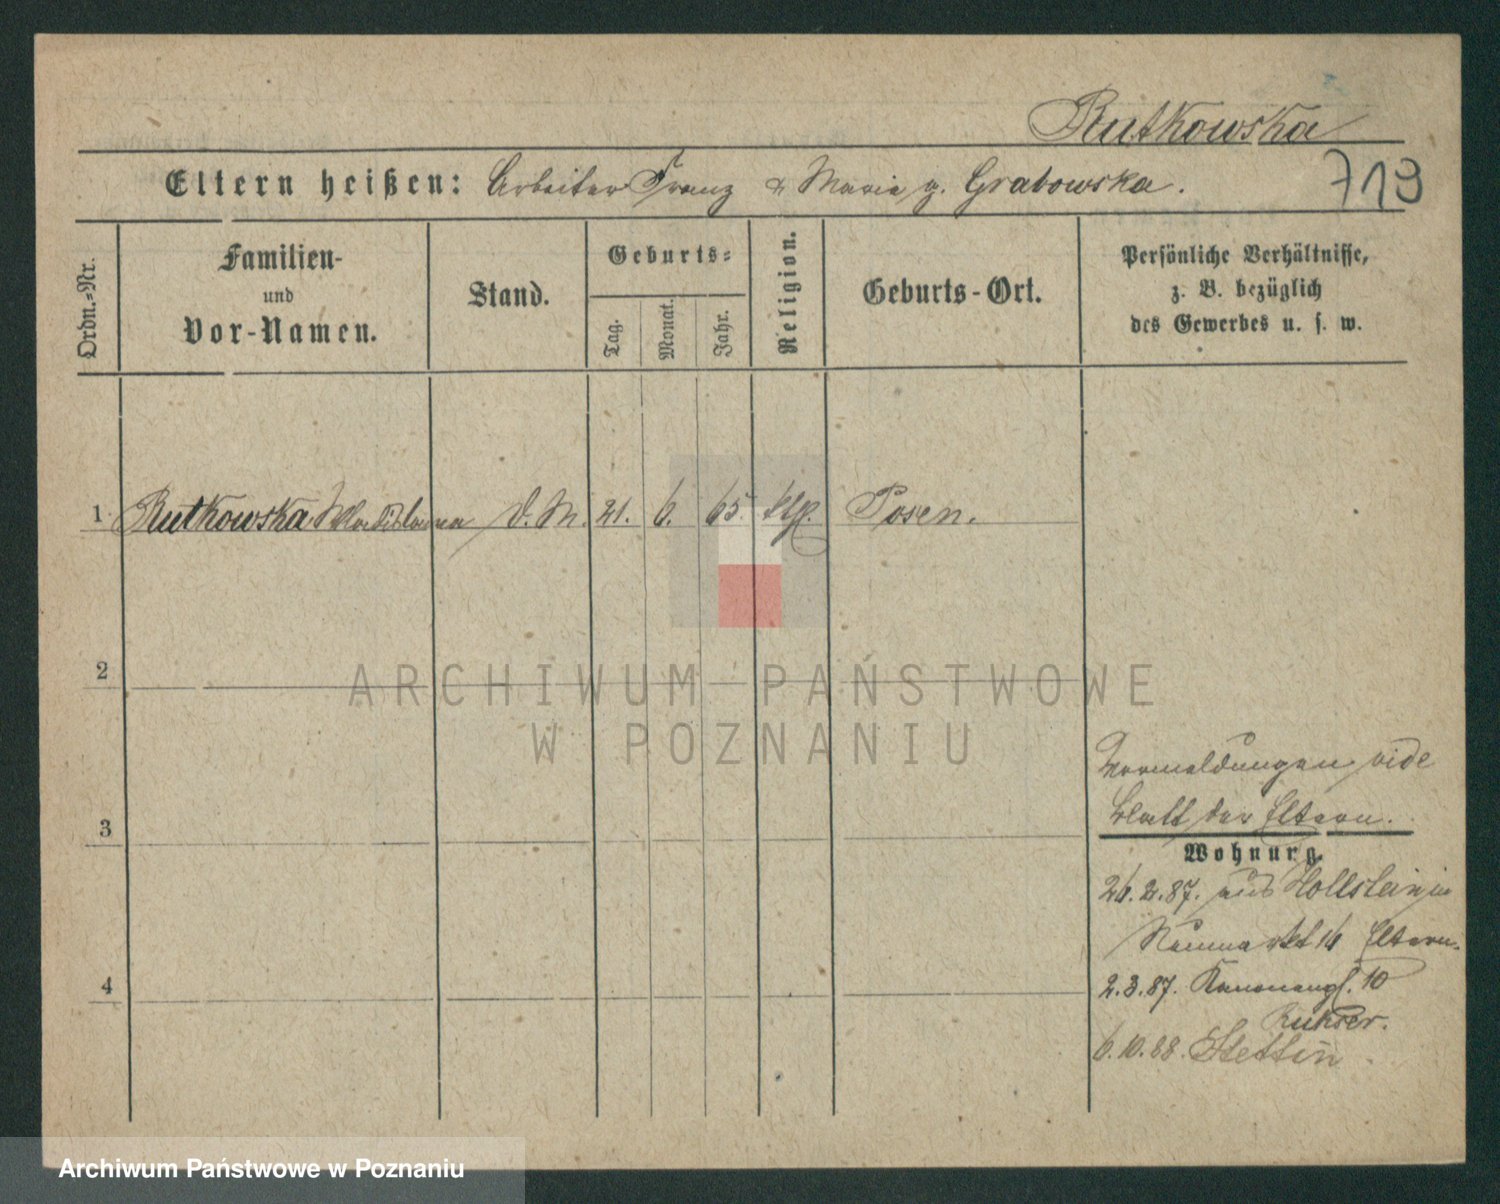 Rutkowska
Eltern heißen: Arbeiter Franz & Maria g. Grabowska.
719
Ordn.=Nr.
Familien-
und
Vor-Namen.
Stand.
Geburts=
Tag.
Monat.
Jahr.
Religion.
Geburts-Ort.
Persönliche Verhältnisse,
z. B. bezüglich
des Gewerbes u. s. w.
1 Rutkowska Wladislawa d. M. 21. 6. 65. ktp. Posen.
2
3
4
ARCHIWUM PAŃSTWOWE
W POZNANIU
Vormeldungen vide
Blatt der Eltern.
Wohnung.
26.2.87. aus Hollstein in
Neumarkt 16 Eltern.
2.3.87. Kanoneng. 10
6.10.88. Stettin
Archiwum Państwowe w Poznaniu